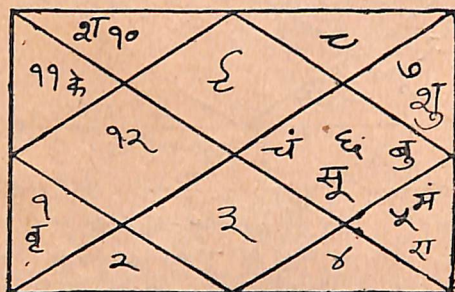 श १० ८
११ के ९ ७ शु
१२ चं ६ बु सू
१ बृ ३ ५ मं रा
२ ४